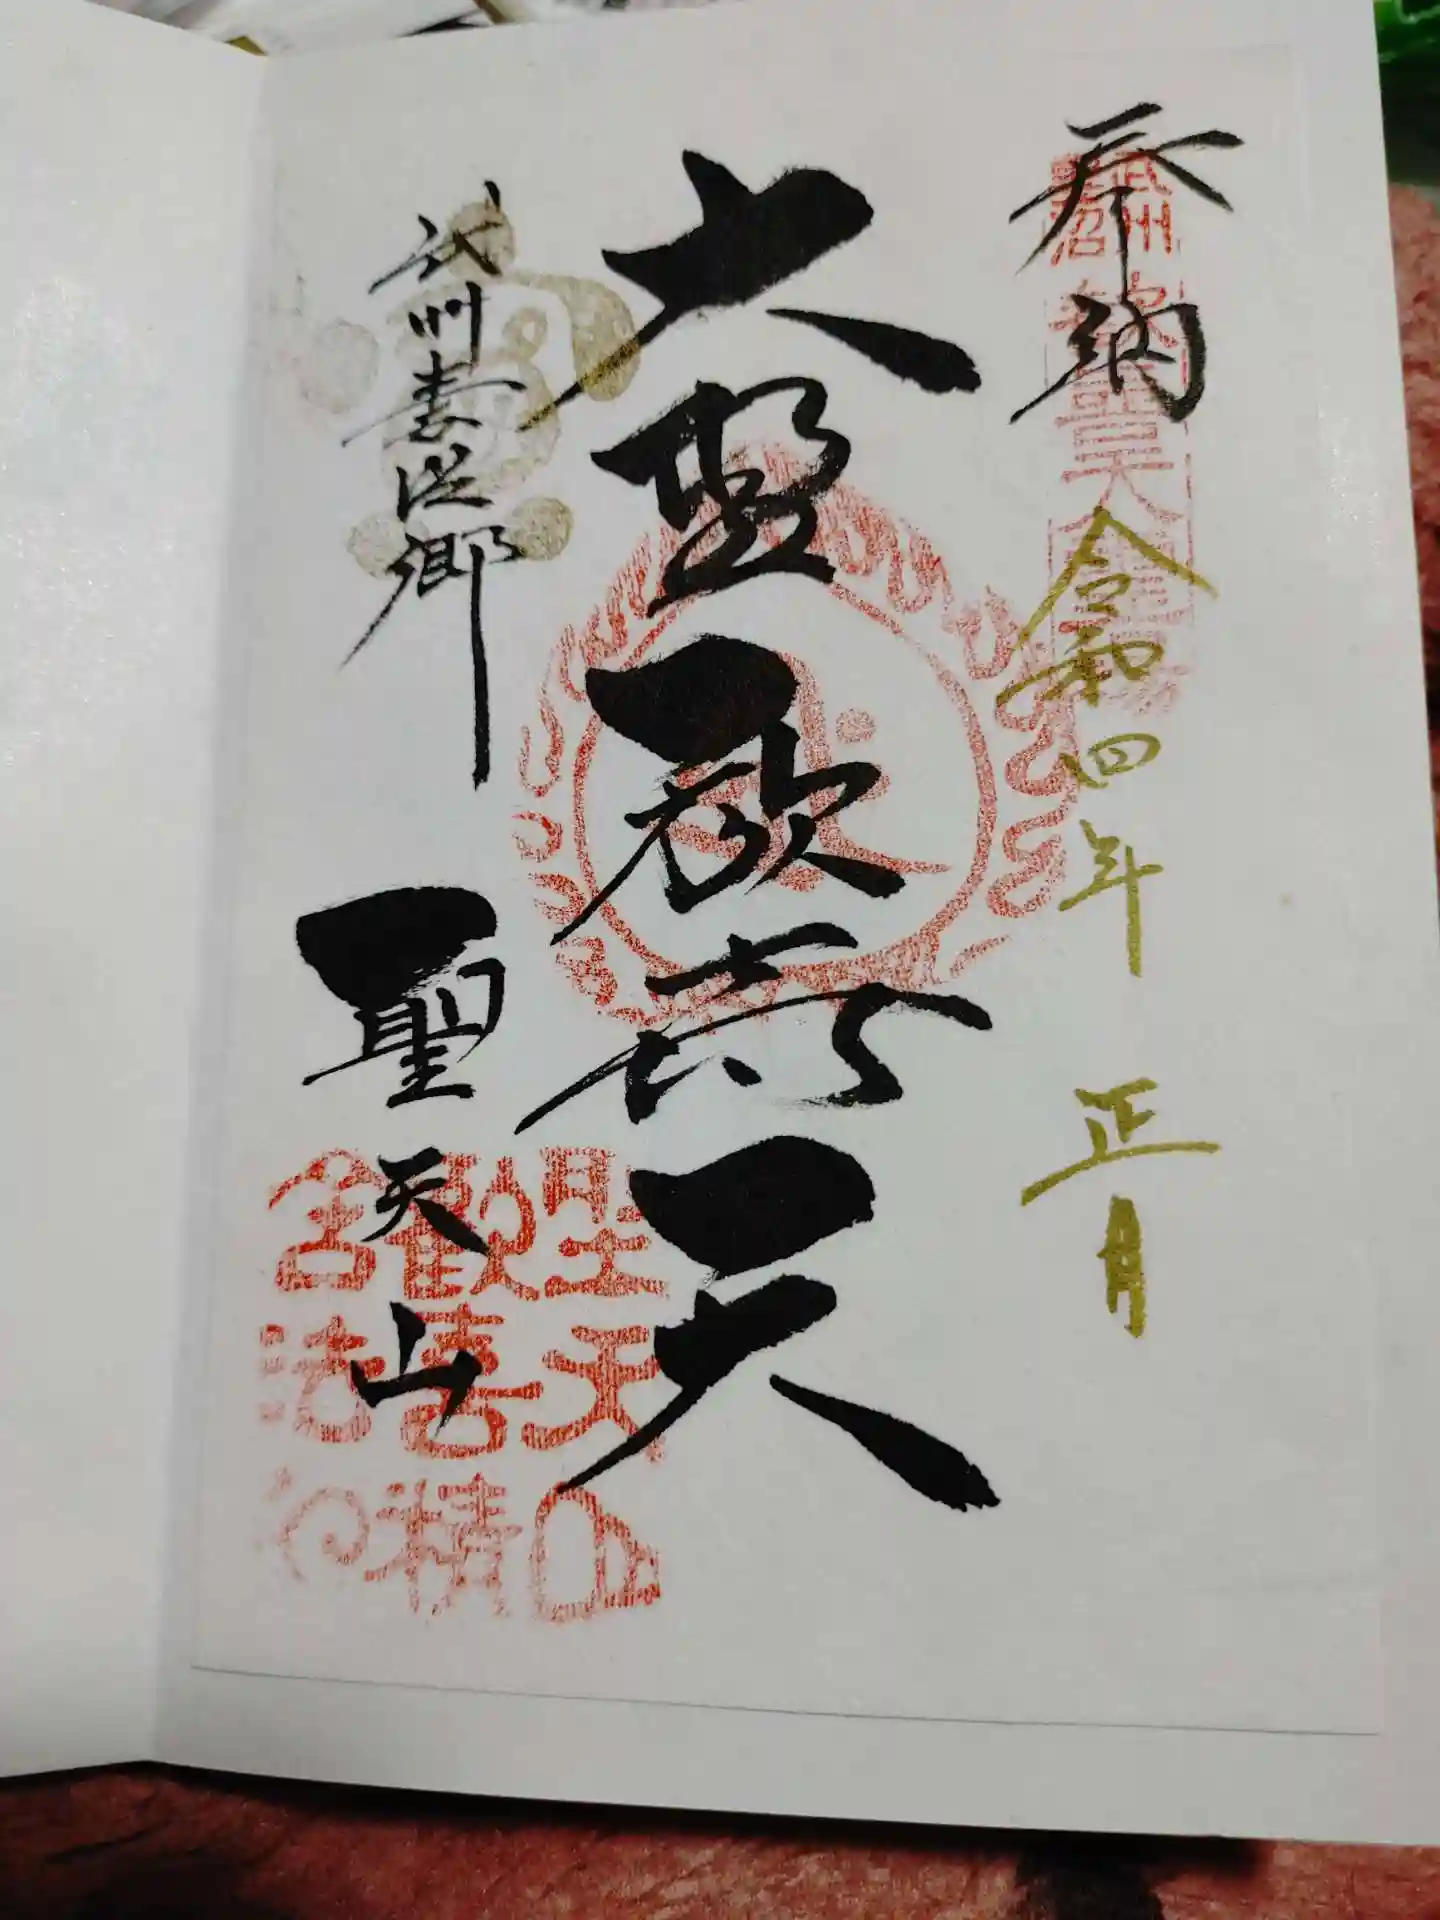 奉納
令和四年 正月
大聖歓喜天
武州妻沼郷
聖天山
武州
妻沼
聖天山
歓喜